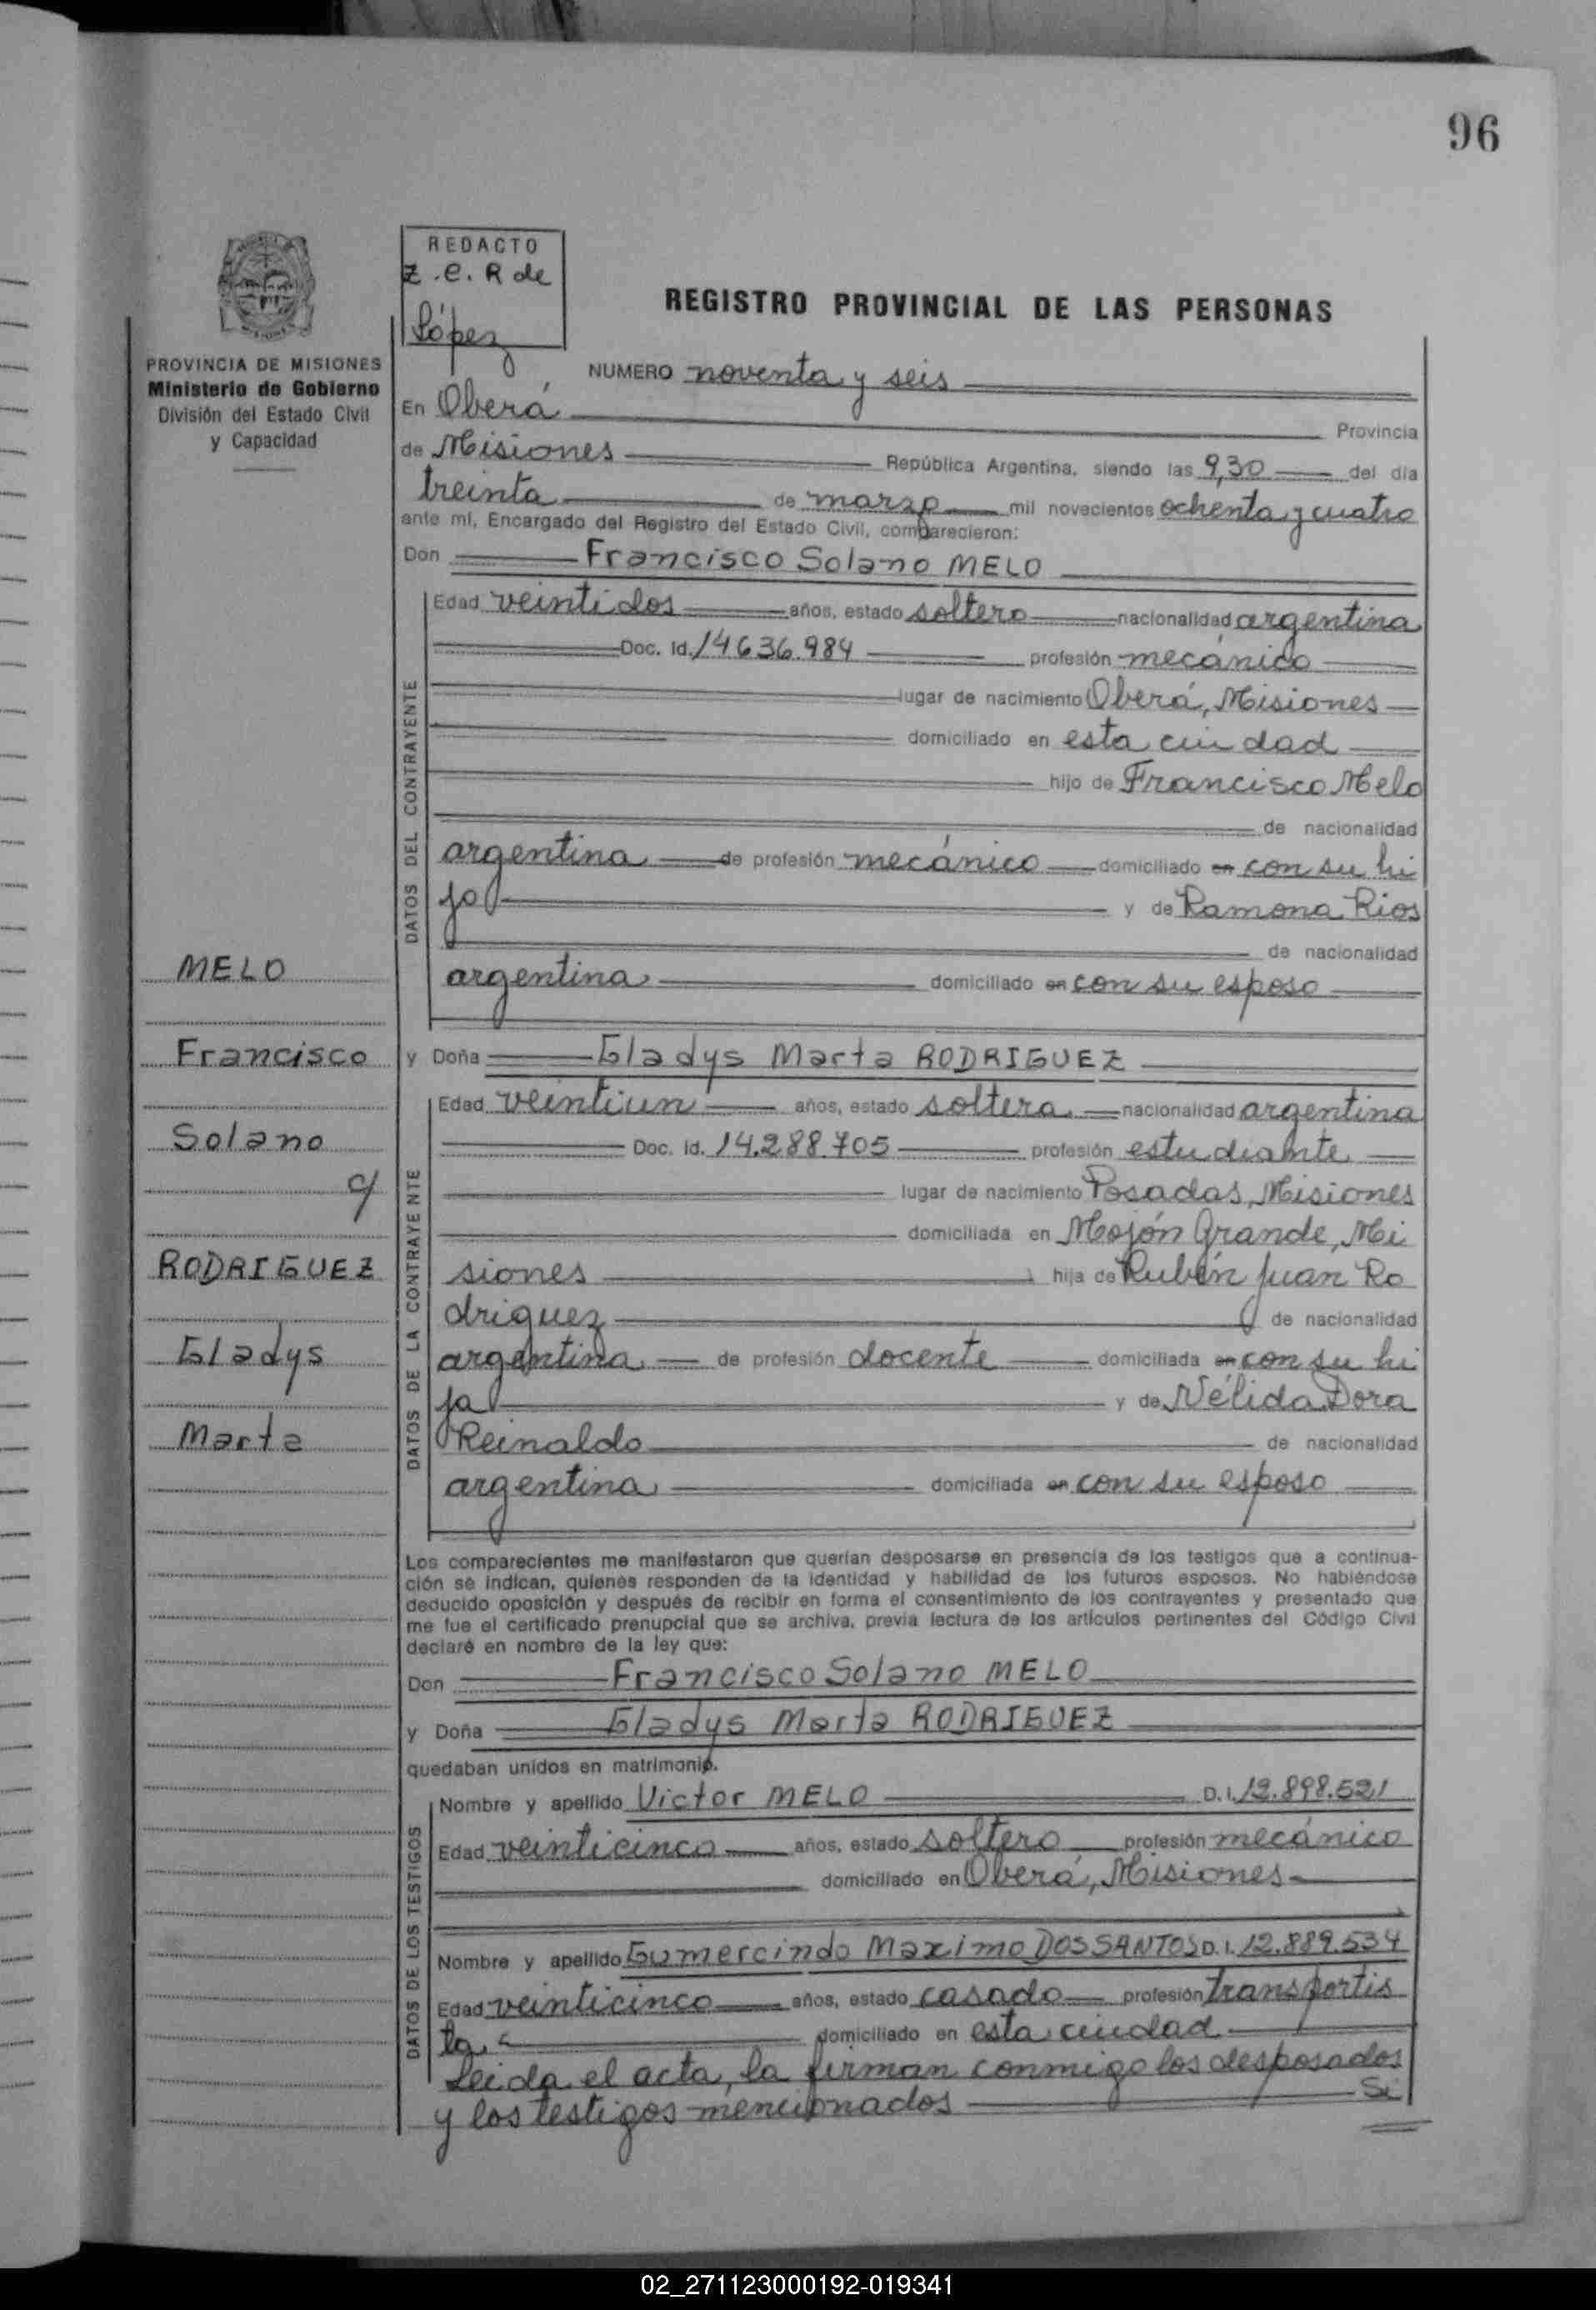 96
REDACTO
Z.e.R de
López
REGISTRO PROVINCIAL DE LAS PERSONAS
PROVINCIA DE MISIONES
Ministerio de Gobierno
División del Estado Civil
y Capacidad
NUMERO noventa y seis
En Oberá Provincia
de Misiones República Argentina, siendo las 9,30 del día
treinta de marzo mil novecientos ochenta y cuatro
ante mí, Encargado del Registro del Estado Civil, comparecieron:
Don Francisco Solano MELO
DATOS DEL CONTRAYENTE
Edad veintidos años, estado soltero nacionalidad argentina
Doc. Id. 14636.984 profesión mecánico
lugar de nacimiento Oberá, Misiones
domiciliado en esta ciudad
hijo de Francisco Melo
de nacionalidad
argentina de profesión mecánico domiciliado en con su hi
jo y de Ramona Rios
de nacionalidad
argentina domiciliado en con su esposo
MELO
Francisco
Solano
c/
RODRIGUEZ
Gladys
Marta
y Doña Gladys Marta RODRIGUEZ
DATOS DE LA CONTRAYENTE
Edad veintiun años, estado soltera nacionalidad argentina
Doc. Id. 14.288.705 profesión estudiante
lugar de nacimiento Posadas, Misiones
domiciliada en Mojón Grande, Mi
siones hija de Rubén Juan Ro
driguez de nacionalidad
argentina de profesión docente domiciliada en con su hi
ja y de Nélida Dora
Reinaldo de nacionalidad
argentina domiciliada en con su esposo
Los comparecientes me manifestaron que querían desposarse en presencia de los testigos que a continua-
ción se indican, quienes responden de la identidad y habilidad de los futuros esposos. No habiéndose
deducido oposición y después de recibir en forma el consentimiento de los contrayentes y presentado que
me fue el certificado prenupcial que se archiva, previa lectura de los artículos pertinentes del Código Civil
declaré en nombre de la ley que:
Don Francisco Solano MELO
y Doña Gladys Marta RODRIGUEZ
quedaban unidos en matrimonio.
DATOS DE LOS TESTIGOS
Nombre y apellido Victor MELO D.I. 12.898.521
Edad veinticinco años, estado soltero profesión mecánico
domiciliado en Oberá, Misiones
Nombre y apellido Gumercindo Maximo DOS SANTOS D.I. 12.889.534
Edad veinticinco años, estado casado profesión transportis
ta. domiciliado en esta ciudad
Leida el acta, la firman conmigo los desposados
y los testigos mencionados Si
02_271123000192-019341